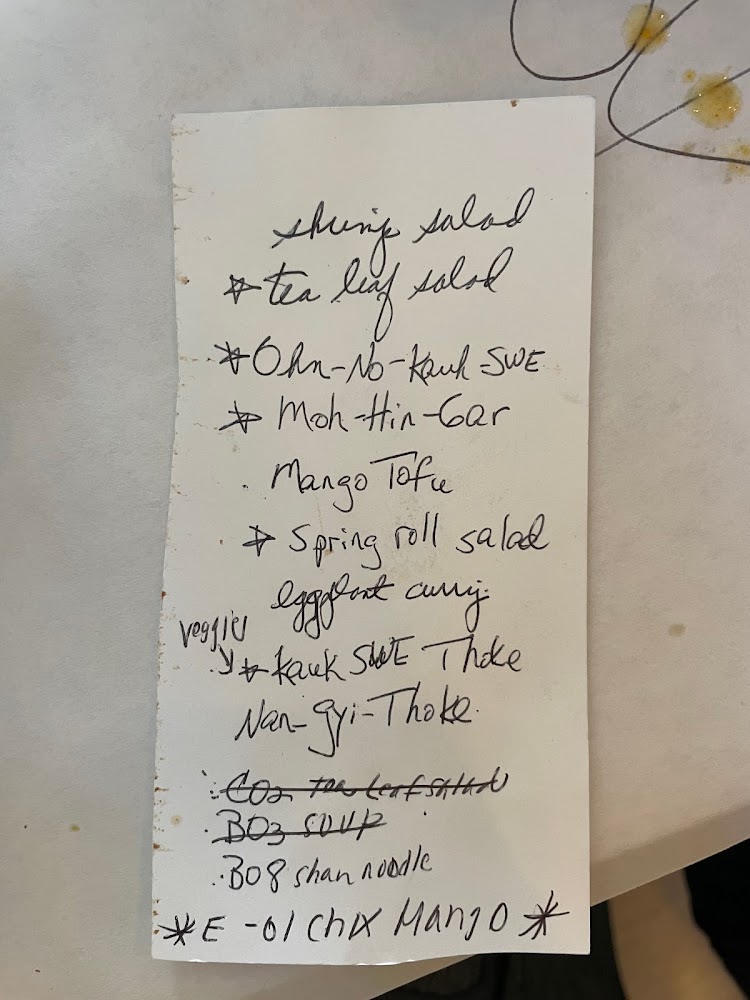 shrimp salad
* tea leaf salad
* Ohn-No-Kauk-SWE
* Moh-Hin-Gar
. Mango Tofu
* Spring roll salad
eggplant curry
veggie
* Kauk SWE Thoke
Nan-gyi-Thoke
CO2 tea leaf salad
BO3 SOUP
BO8 shan noodle
* E-01 Chix Mango *